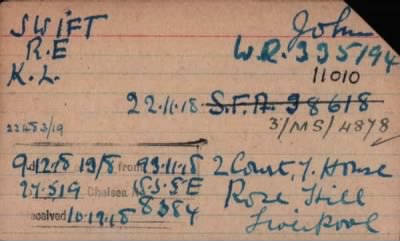 SWIFT John
R.E W.R. 335194
K.L. 11010
22.11.18 S.F.A. 38618
22483/19 3/MS/4878
9.12.18 13/8 from 93.11.18 2 Court, 7. House
27.5.19 Chelsea No Rose Hill
8384 Liverpool
received 10.12.18